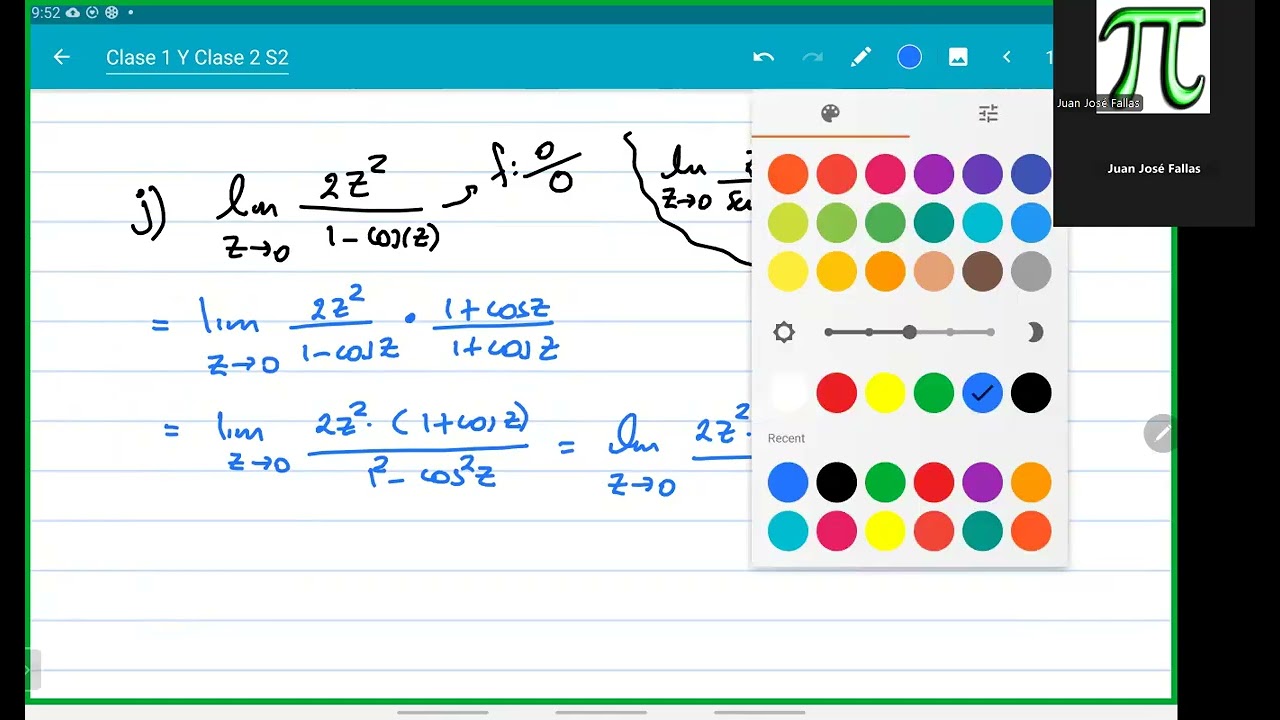 9:52
Clase 1 Y Clase 2 S2
1
Juan José Fallas
Juan José Fallas
j) lim z→0 2z² / 1 - cos(z) → f: 0/0 lim z→0
= lim z→0 2z² / 1 - cos z • 1 + cos z / 1 + cos z
= lim z→0 2z² · (1 + cos z) / 1² - cos² z = lim z→0 2z² ·
Recent